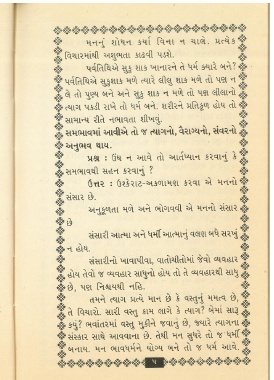 મનનું શોધન કર્યા વિના ન ચાલે. પ્રત્યેક
વિચારમાંથી અશુભતા કાઢવી પડશે.
પર્વતિથિએ સુકુ શાક ખાનારને તે ધર્મ ક્યારે બને?
પર્વતિથિએ સુકુશાક મળે ત્યારે લીલુ શાક મળે તો પણ ન
લે તો પુણ્ય બને અને સુકુ શાક ન મળે તો પણ લીલાનો
ત્યાગ પકડી રાખે તો ધર્મ બને. શરીરને પ્રતિકૂળ હોય તો
સામાન્ય રીતે નભાવતા શીખવું.
સમભાવમાં આવીએ તો જ ત્યાગનો, વૈરાગ્યનો, સંવરનો
અનુભવ થાય.
પ્રશ્ન : ઉંઘ ન આવે તો આર્તધ્યાન કરવાનું કે
સમભાવથી સહન કરવાનું ?
ઉત્તર : ઉશ્કેરાટ-અકળામણ કરવા એ મનનો
સંસાર છે.
અનુકૂળતા મળે અને ભોગવવી એ મનનો સંસાર
છે
સંસારી આત્મા અને ધર્મી આત્માનું વલણ બધે સરખું
ન હોય.
સંસારીનો ખાવાપીવા, વાતોચીતોમાં જેવો વ્યવહાર
હોય તેવો જ વ્યવહાર સાધુનો હોય તો તે વ્યવહારથી સાધુ
છે, પણ નિશ્ચયથી નહિ.
તમને ત્યાગ પ્રત્યે માન છે કે વસ્તુનું મમત્વ છે,
તે વિચારો. સારી વસ્તુ કામ લાગે કે ત્યાગ? બેમાં સારૂ
કયું? ભવાંતરમાં વસ્તુ મુકીને જવાનું છે, જ્યારે ત્યાગના
સંસ્કાર સાથે આવવાના છે. તેથી મન સુધરે તો જ ધર્મી
બનાય. મન ભાવધર્મને યોગ્ય બને તો જ ધર્મ આવે.
૫